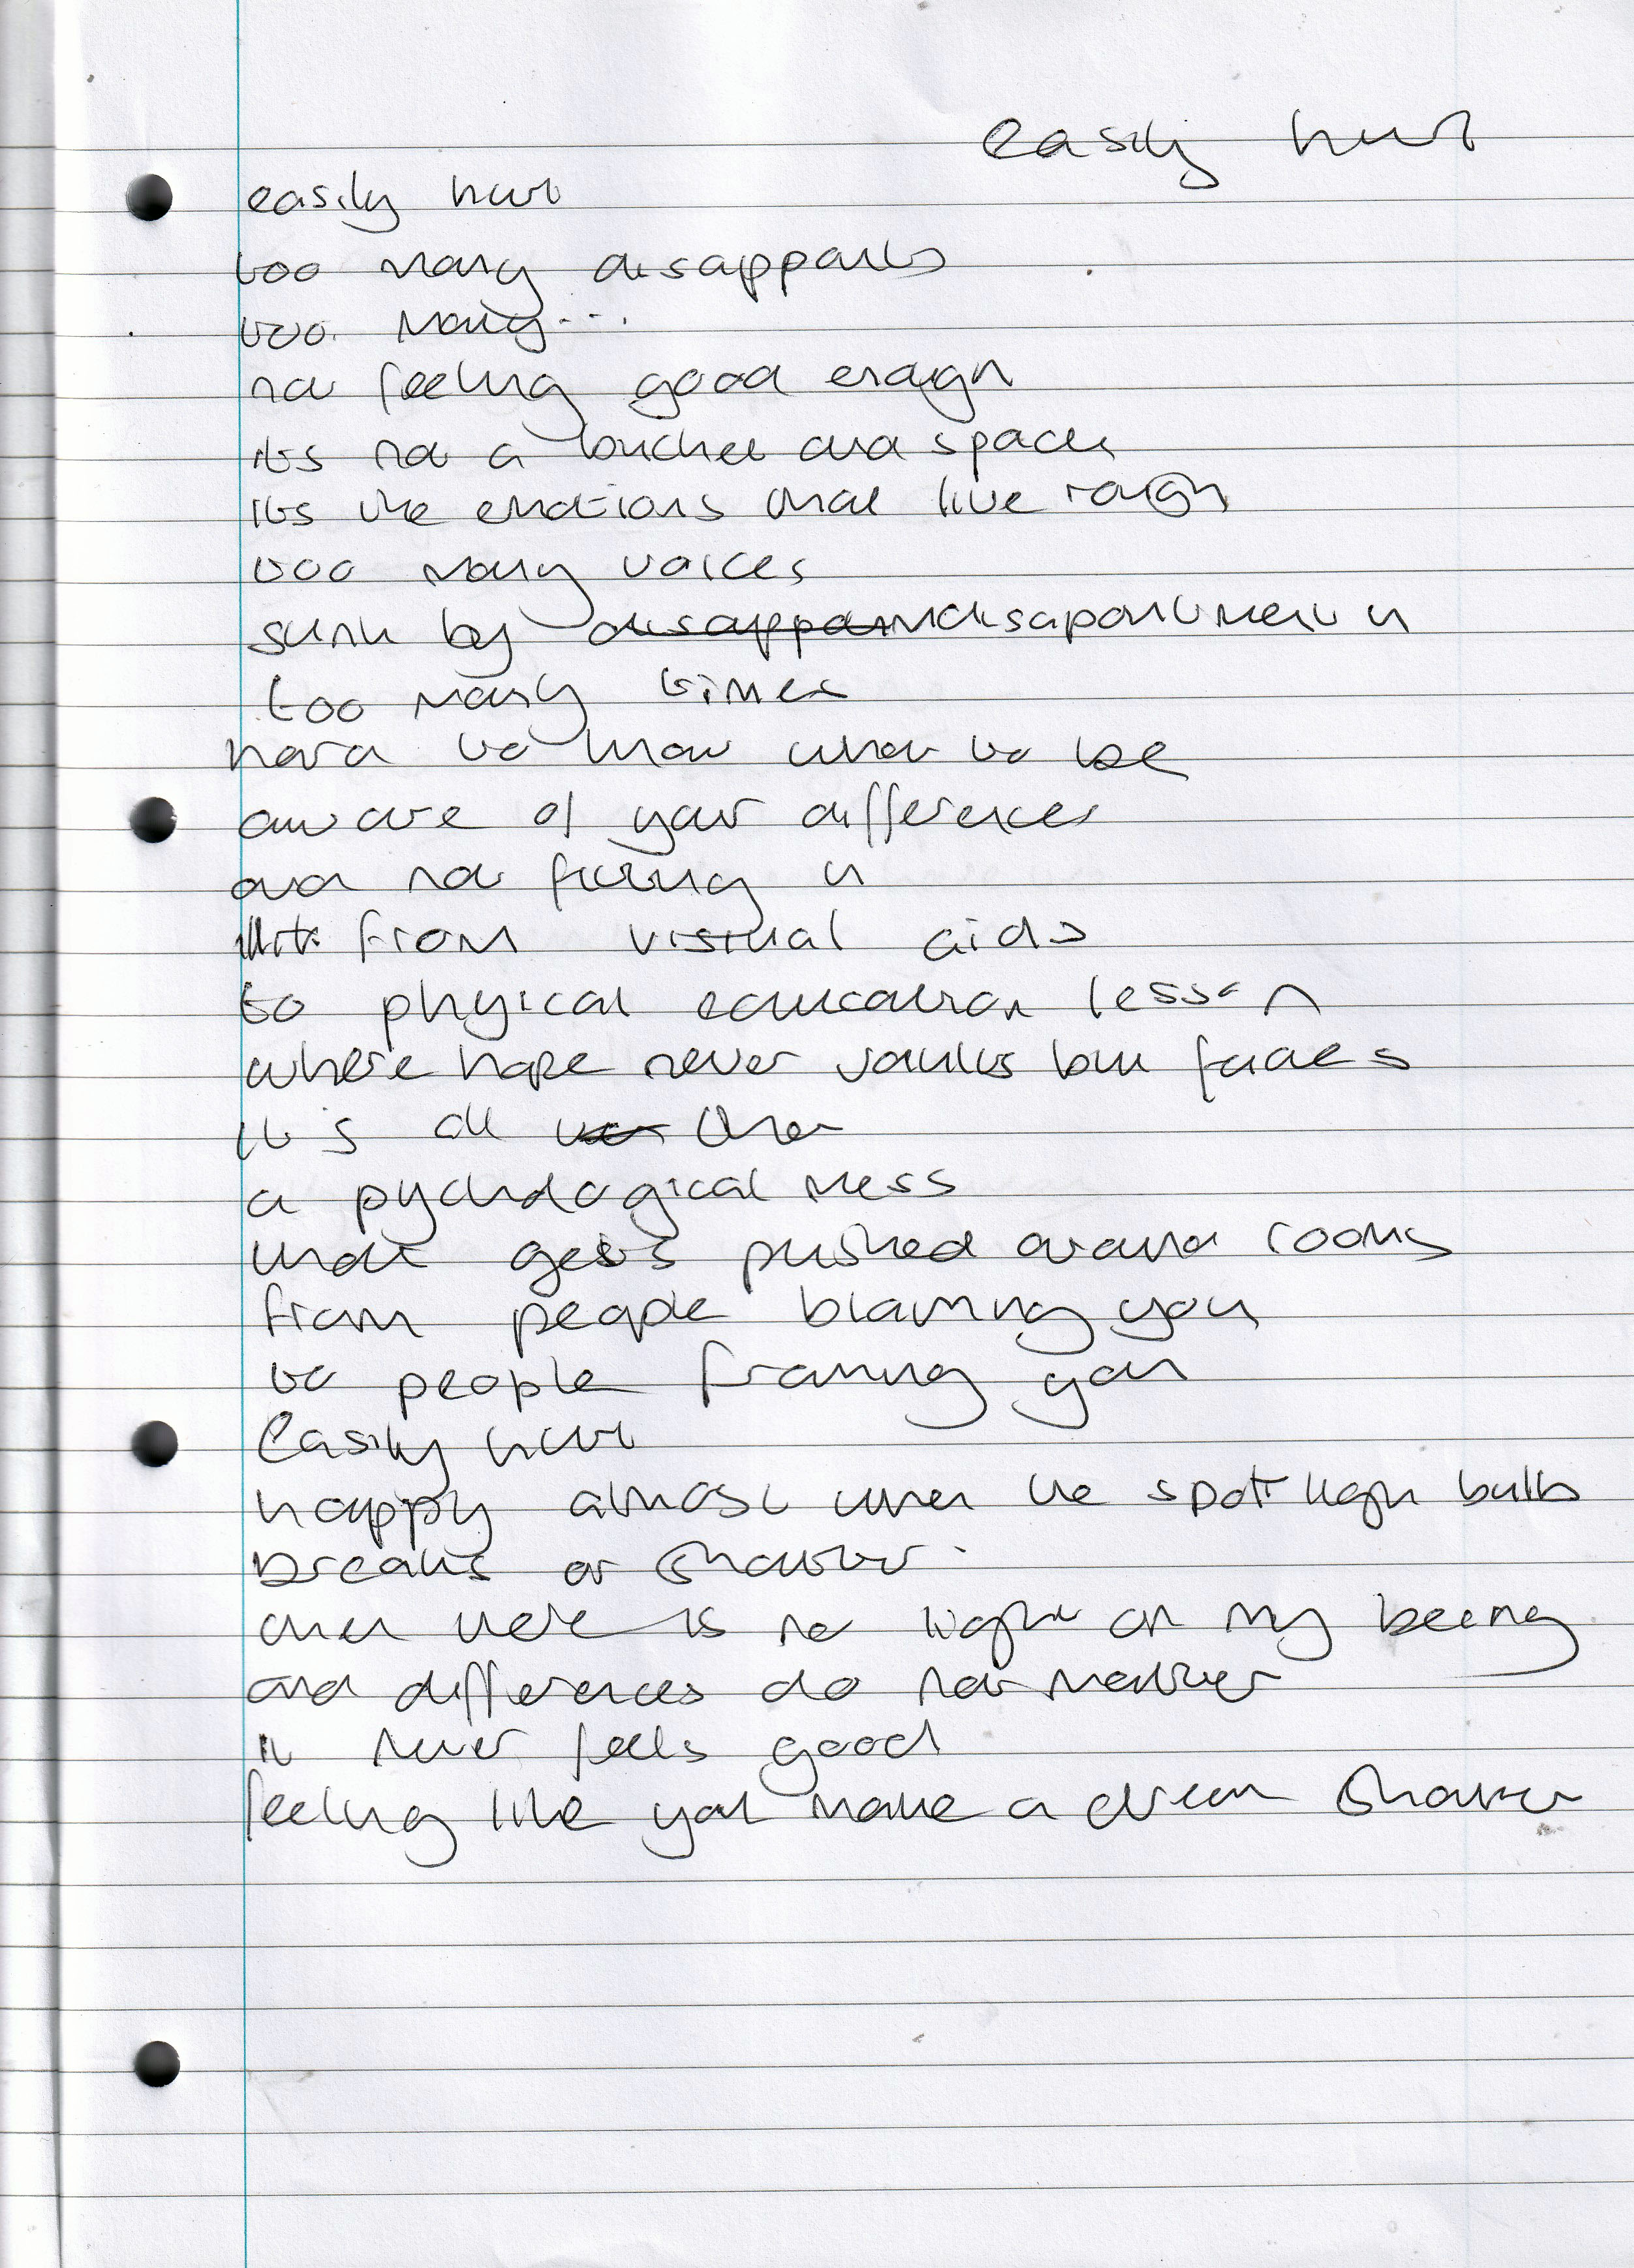 easily hurt
easily hurt
too many disappoints
too many...
not feeling good enough
its not a bucket and spade
its the emotions that live rough
too many voices
sunk by disapointment in
too many times
hard to know what to be
aware of your differences
and not fitting in
from visual aids
to phyical education lesson
where hope never vaults but fades
it's all then
a pychological mess
that gets pushed around rooms
from people blaming you
to people framing you
Easily hurt
happy almost when the spot light bulb
breaks or shatter
when there is no light on my being
and differences do not matter
it never feels good
feeling like you make a dream shatter